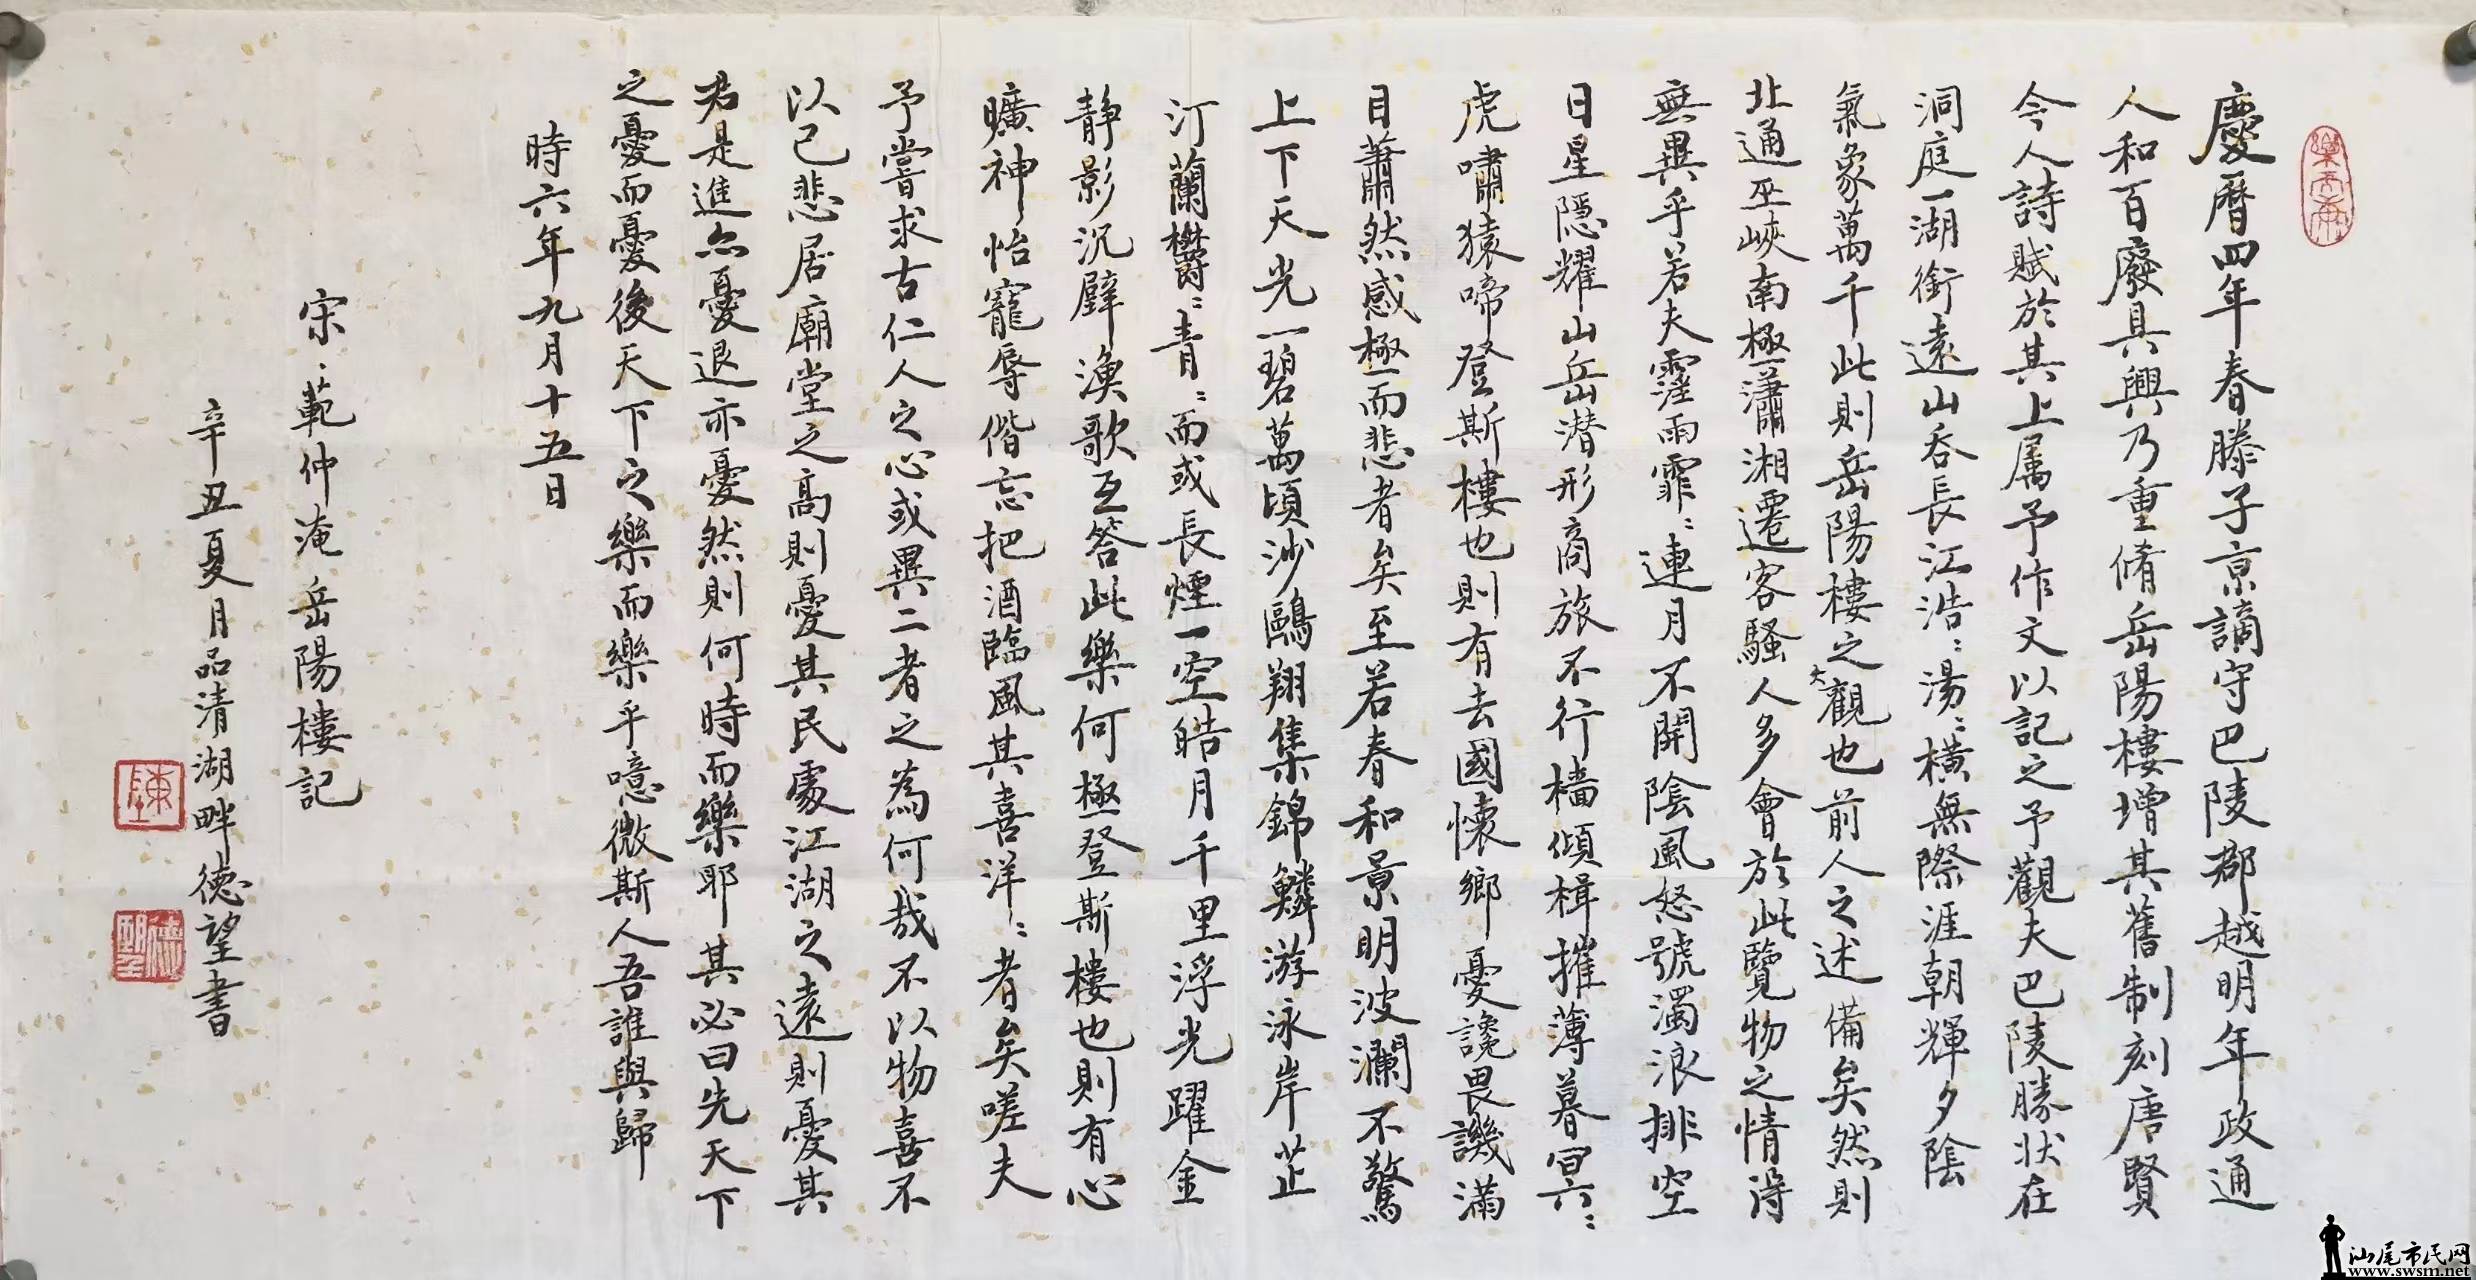 慶曆四年春滕子京謫守巴陵郡越明年政通
人和百廢具興乃重脩岳陽樓增其舊制刻唐賢
今人詩賦於其上属予作文以記之予觀夫巴陵勝狀在
洞庭一湖銜遠山吞長江浩〻湯〻橫無際涯朝輝夕陰
氣象萬千此則岳陽樓之大觀也前人之述備矣然則
北通巫峽南極瀟湘遷客騷人多會於此覽物之情淂
無異乎若夫霪雨霏〻連月不開陰風怒號濁浪排空
日星隱耀山岳潜形商旅不行檣傾楫摧薄暮冥〻
虎嘯猿啼登斯樓也則有去國懷鄉憂讒畏譏滿
目蕭然感極而悲者矣至若春和景明波瀾不驚
上下天光一碧萬頃沙鷗翔集錦鱗游泳岸芷
汀蘭欝〻青〻而或長煙一空皓月千里浮光躍金
靜影沉璧漁歌互答此樂何極登斯樓也則有心
曠神怡寵辱偕忘把酒臨風其喜洋〻者矣嗟夫
予嘗求古仁人之心或異二者之為何哉不以物喜不
以己悲居廟堂之高則憂其民處江湖之遠則憂其
君是進亦憂退亦憂然則何時而樂耶其必曰先天下
之憂而憂後天下之樂而樂乎噫微斯人吾誰與歸
時六年九月十五日
宋、範仲淹岳陽樓記
辛丑夏月品清湖畔德望書
陳
德望
汕尾市民网
www.swsm.net